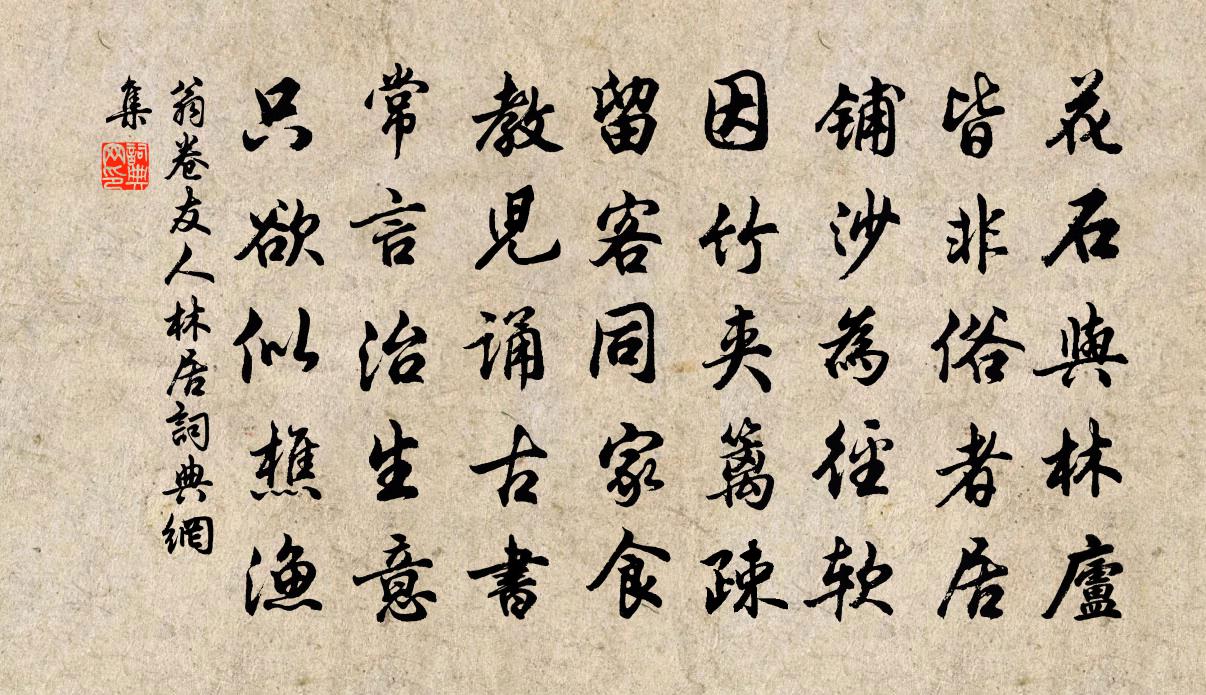 花石與林廬
皆非俗者居
鋪沙為徑軟
因竹夾籬疎
留客同家食
教兒誦古書
常言治生意
只欲似樵漁
翁卷友人林居詞典網
集
詞典
网印